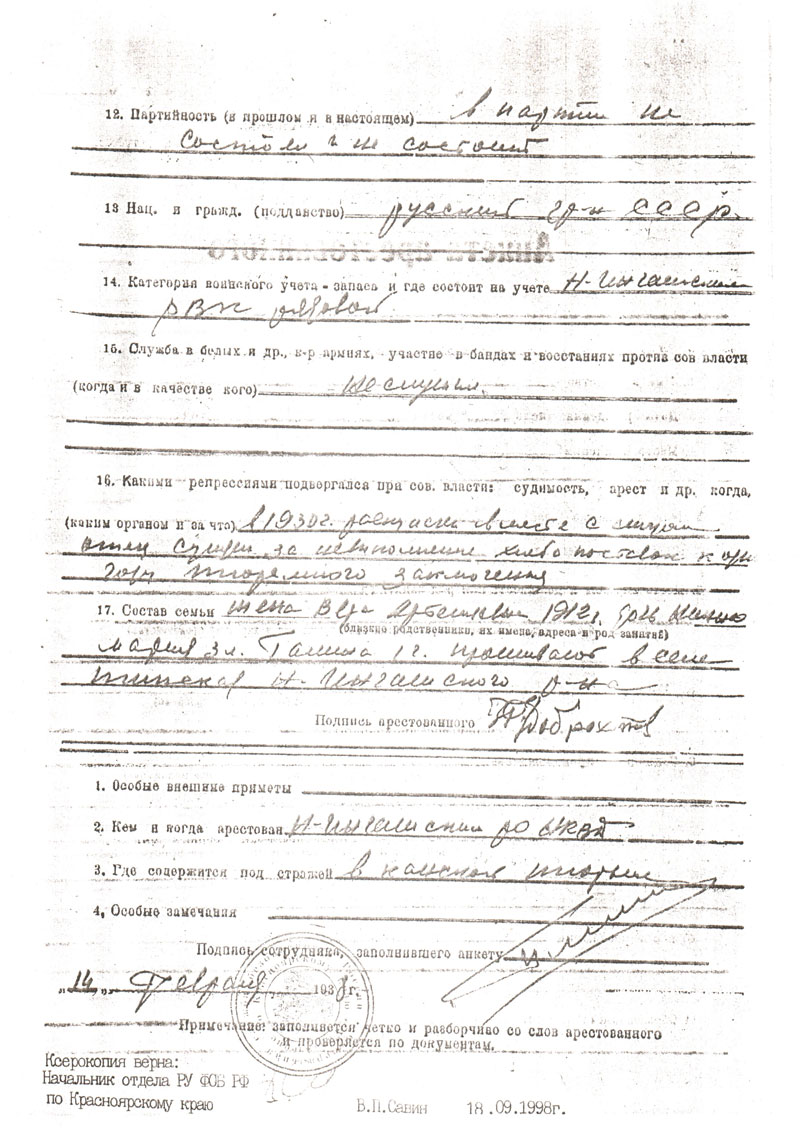 12. Партийность (в прошлом и в настоящем) в партии не
состоял и не состоит
13 Нац. и гражд. (подданство) русский гр-н СССР.
Анкета арестованного
14. Категория воинского учета - запаса и где состоит на учете Н-Ингашским
РВК рядовой
15. Служба в белых и др., к-р армиях, участие в бандах и восстаниях против сов власти
(когда и в качестве кого) не служил.
16. Какими репрессиями подвергался при сов. власти: судимость, арест и др. когда,
(каким органом и за что) в 1930 г. вместе с
отец судим за невыполнение хлебопоставок к
году тюремного заключения
17. Состав семьи жена Вера 1912 г. дочь
(близкие родственники, их имена, адреса и род занятий)
Мария 3 л. Галина 1 г. проживают в селе
Тинская Н-Ингашского р-на
Подпись арестованного
1. Особые внешние приметы
2. Кем и когда арестован Н-Ингашским РО НКВД
3. Где содержится под стражей в канской тюрьме
4, Особые замечания
Подпись сотрудника, заполнившего анкету
„14„ февраля 1938 г.
Примечание: заполняется четко и разборчиво со слов арестованного
и проверяется по документам.
Ксерокопия верна:
Начальник отдела РУ ФСБ РФ
по Красноярскому краю В.П.Савин 18.09.1998г.